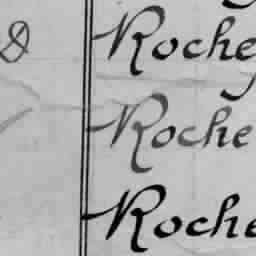 Roche
Roche
Roche